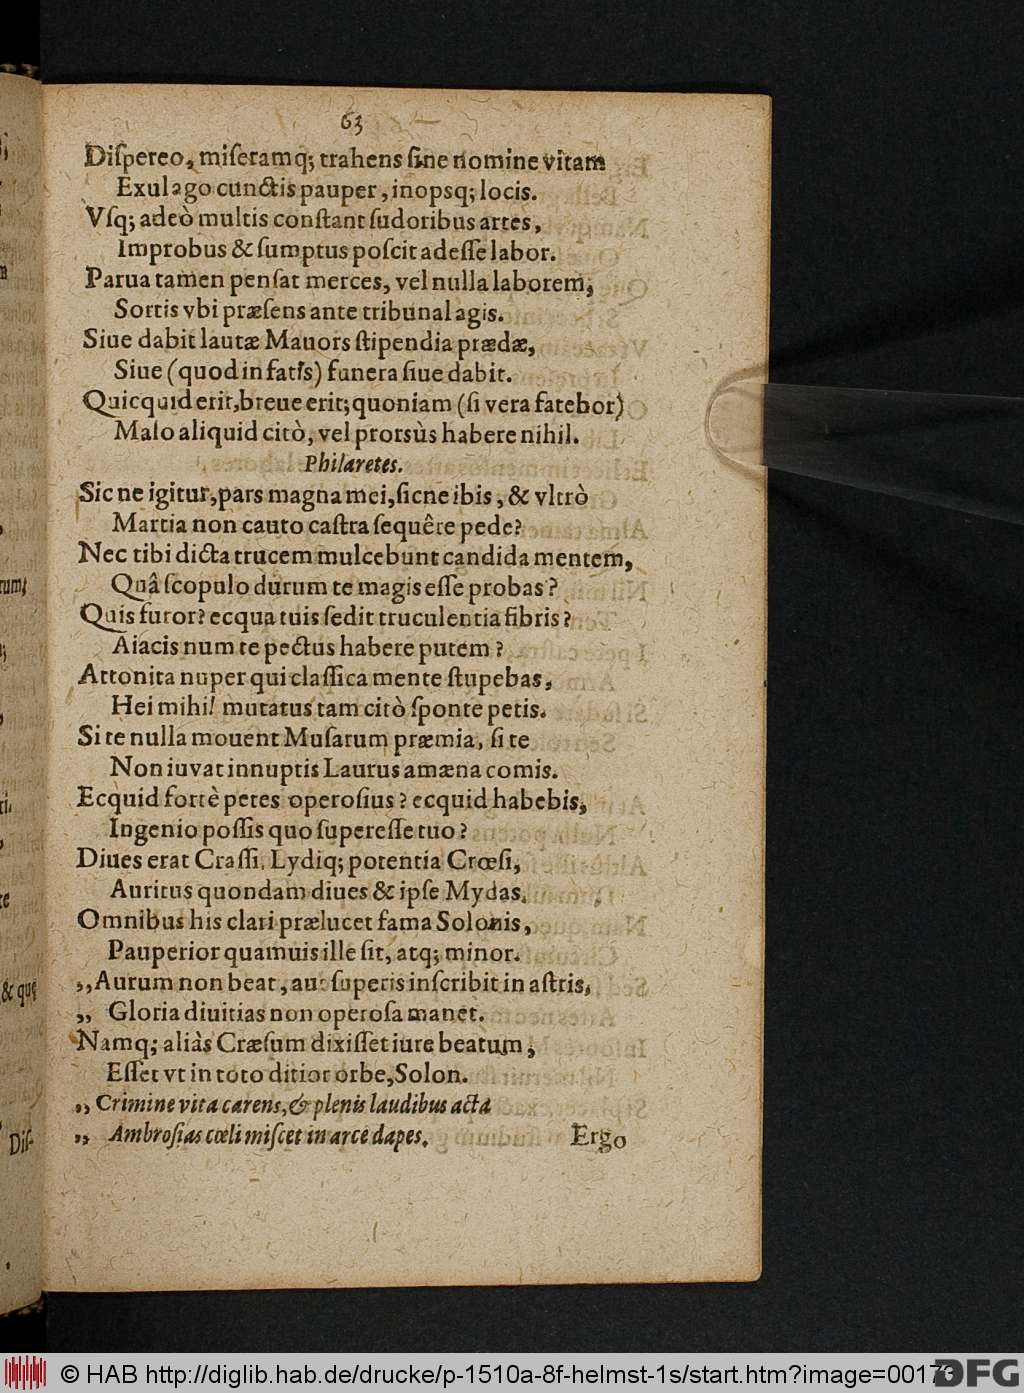 63
Diſpereo, miſeramq; trahens ſine nomine vitam
Exul ago cunctis pauper, inopsq; locis.
Vſq; adeò multis conſtant ſudoribus artes,
Improbus & ſumptus poſcit adeſſe labor.
Parua tamen penſat merces, vel nulla laborem,
Sortis vbi præſens ante tribunal agis.
Siue dabit lautæ Mauors ſtipendia prædæ,
Siue (quod in fatis) funera ſiue dabit.
Quicquid erit, breue erit; quoniam (ſi vera fatebor)
Malo aliquid citò, vel prorsùs habere nihil.
Philaretes.
Sic ne igitur, pars magna mei, ſicne ibis, & vltrò
Martia non cauto caſtra ſequêre pede?
Nec tibi dicta trucem mulcebunt candida mentem,
Quâ ſcopulo durum te magis eſſe probas?
Quis furor? ecqua tuis ſedit truculentia fibris?
Aiacis num te pectus habere putem?
Attonita nuper qui claſſica mente ſtupebas,
Hei mihi! mutatus tam citò ſponte petis.
Si te nulla mouent Muſarum præmia, ſi te
Non iuvat innuptis Laurus amæna comis.
Ecquid fortè petes operoſius? ecquid habebis,
Ingenio poſſis quo ſupereſſe tuo?
Diues erat Craſſi, Lydiq; potentia Crœſi,
Auritus quondam diues & ipſe Mydas.
Omnibus his clari prælucet fama Solonis,
Pauperior quamuis ille ſit, atq; minor.
,,Aurum non beat, aut ſuperis inſcribit in aſtris,
,, Gloria diuitias non operoſa manet.
Namq; aliàs Cræſum dixiſſet iure beatum,
Eſſet vt in toto ditior orbe, Solon.
,, Crimine vita carens, & plenis laudibus acta
,, Ambroſias cœli miſcet in arce dapes.
Ergo
rum;
& quę
Diſ-
© HAB http://diglib.hab.de/drucke/p-1510a-8f-helmst-1s/start.htm?image=00173
DFG